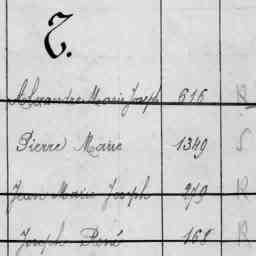 T.
Alexandre Marie Joseph 616 R
Pierre Marie 1349 S
Jean Marie Joseph 279 R
Joseph René 168 R